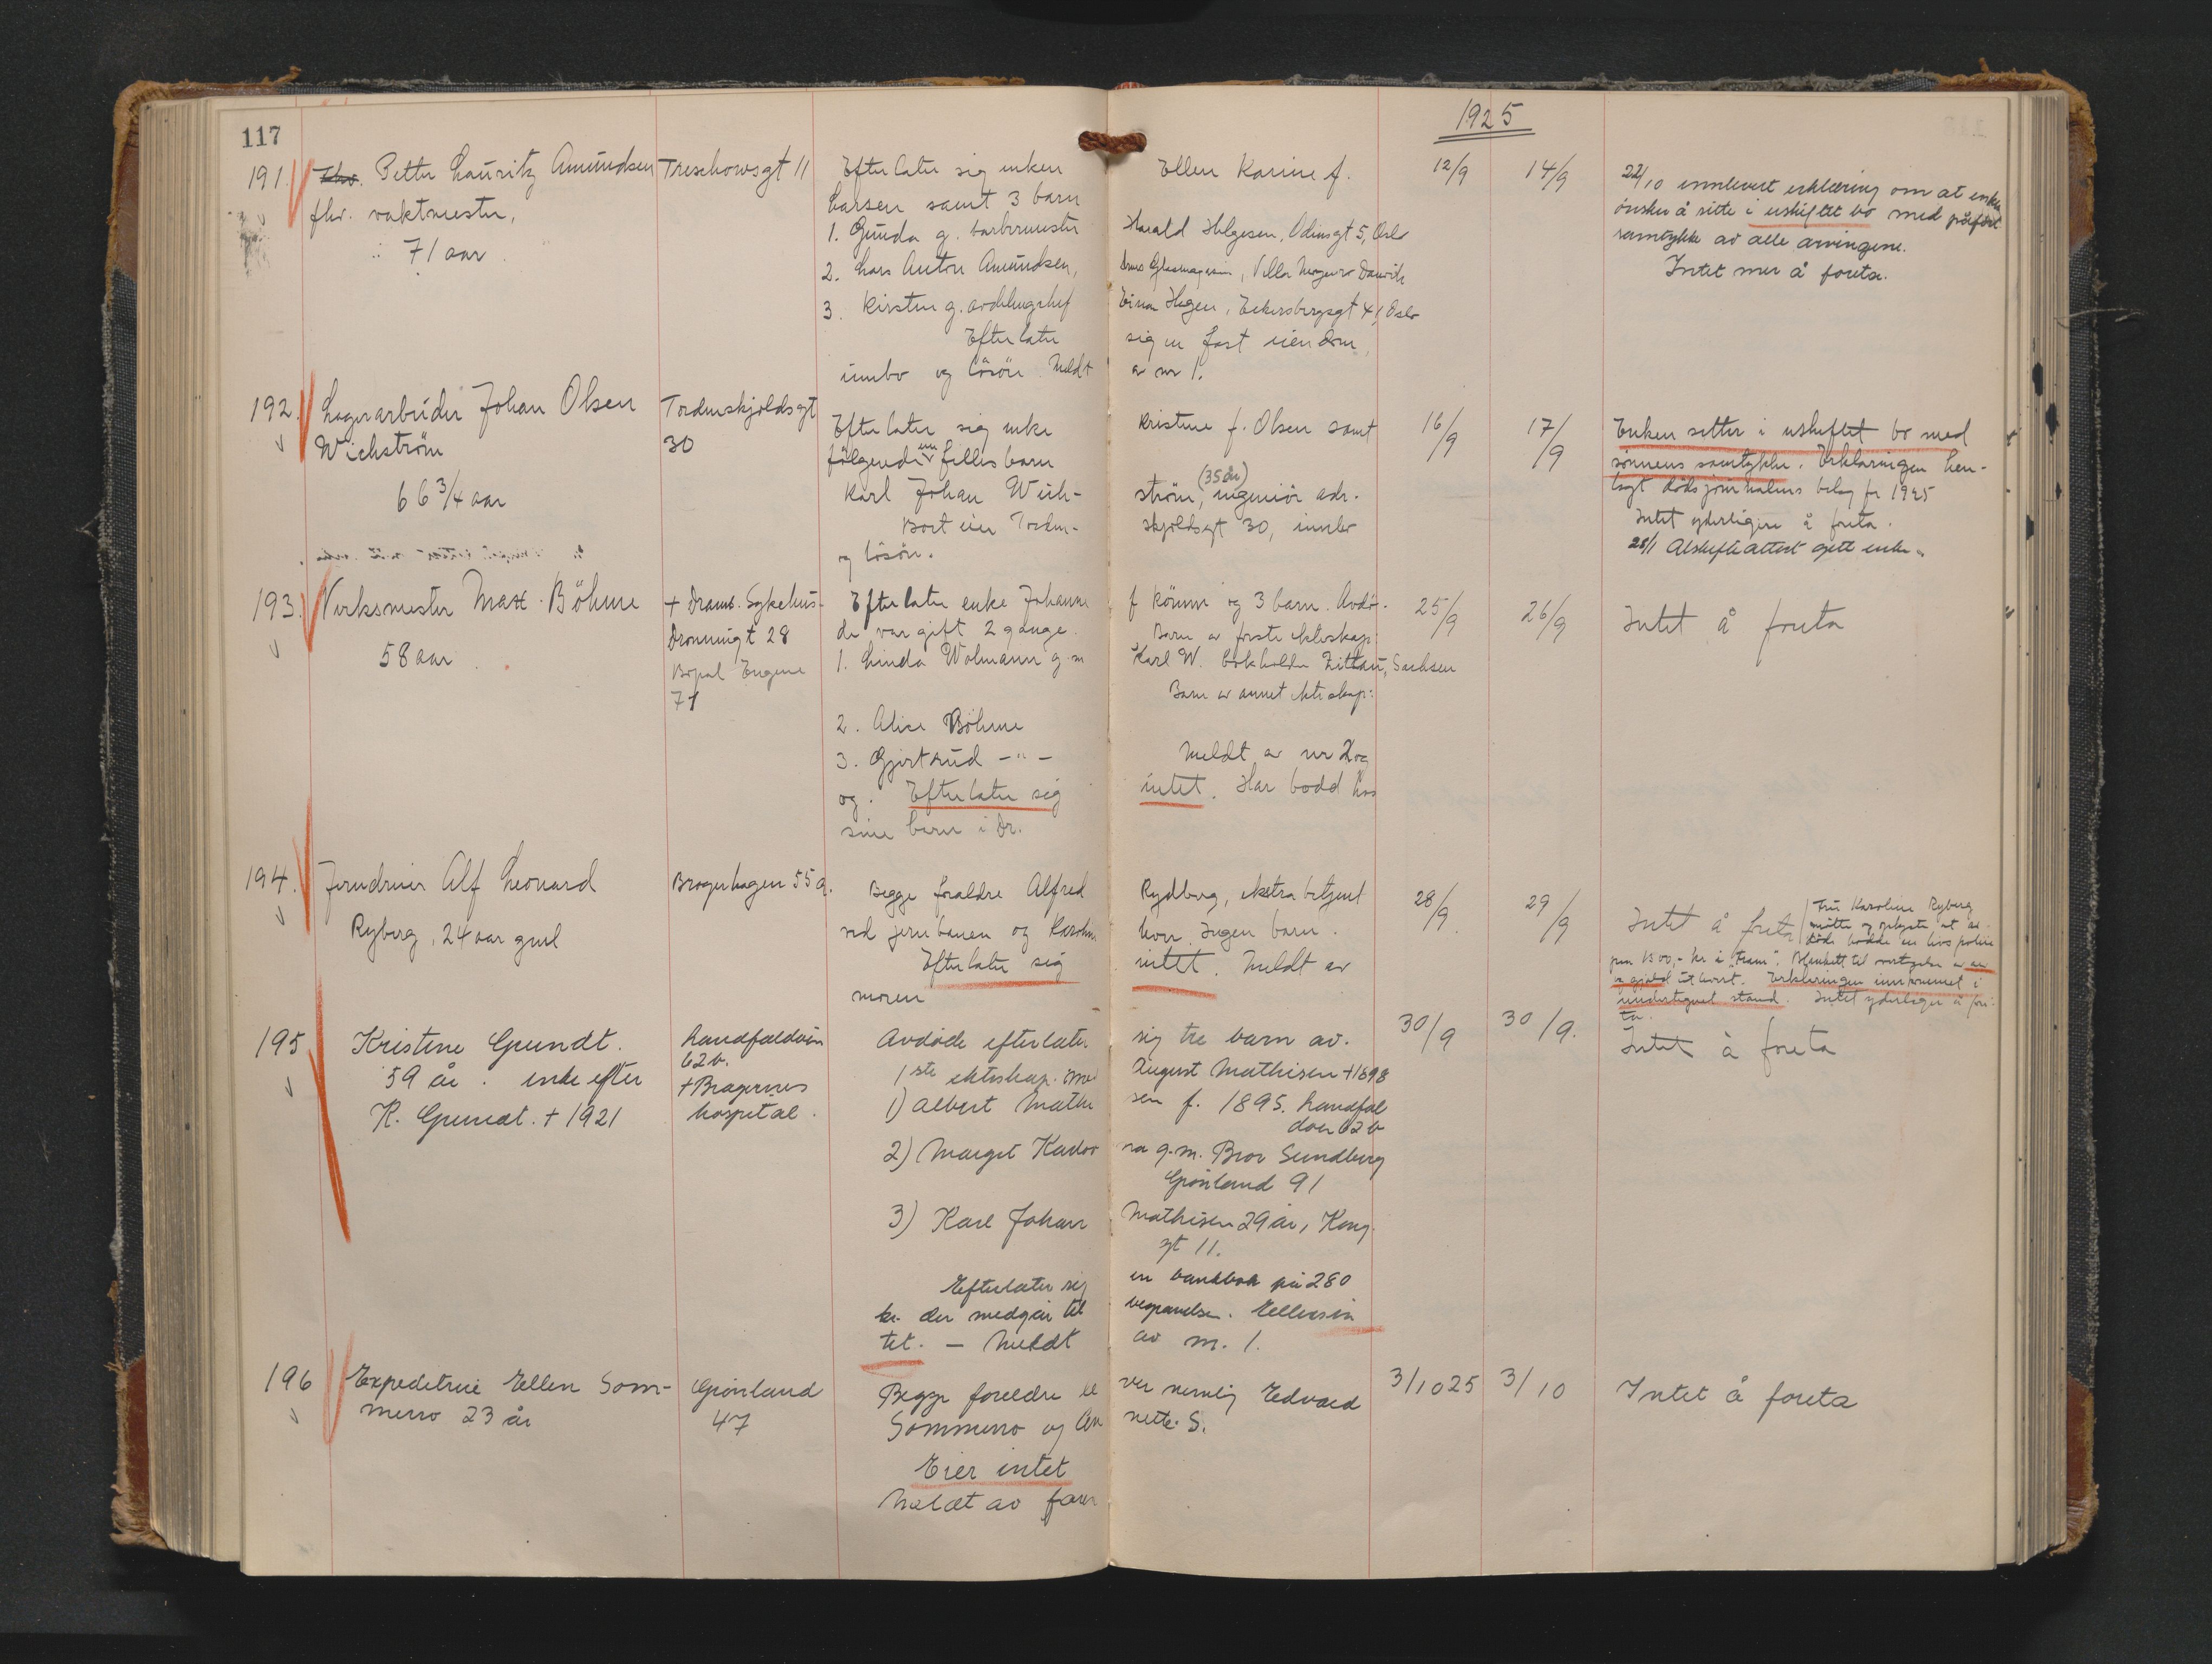 117
1925
191. Petter Lauritz Amundsen
fhv. vaktmester,
71 aar
Treschowsgt 11
Efterlater sig enken Ellen Karine f.
Larsen samt 3 barn
1. Gunda g. barbermester Harald Helgesen, Odinsgt 5, Oslo
2. Lars Anton Amundsen, Glasmagasin, Villa
3. Kirsten g. avdelingschef Einar Hagen, Eckersbergsgt 41, Oslo
Efterlater sig en fast eiendom
innbo og lösöre. Meldt av nr 1.
12/9
14/9
22/10 innlevert erklæring om at enken
önsker å sitte i uskiftet bo med påfört
samtykke av alle arvingene.
Intet mer å foreta.
192. Lagerarbeider Johan Olsen
Wichström
66 3/4 aar
Tordenskjoldsgt
30
Efterlater sig enke Kristine f. Olsen samt
fölgende en fellesbarn
Karl Johan Wich- ström, (35 år) ingeniör adr.
Bort eier Torden- skjoldsgt 30, innbo
og lösöre.
16/9
17/9
Enken sitter i uskiftet bo med
sönnens samtykke. Erklæringen hen-
lagt dödsjournalens bilag for 1925
Intet yderligere å foreta.
28/1 Uskifteattest gitt enken
193. Verksmester Max Böhme
58 aar
+ Dramm. Sykehus
Dronningt 28
Bopæl Engene
71
Efterlater enke Johanne f Könnu og 3 barn. Avdö-
de var gift 2 gange. Barn av første ekteskap:
1. Linda Wolmann g. m Karl W. bokholder Zittau, Sachsen
Barn av annet ekteskap:
2. Alice Böhme
3. Gjertrud -"- Meldt av nr 2 og
og. Efterlater sig intet. Har bodd hos
sine barn i Dr.
25/9
26/9
Intet å foreta
194. Jerndreier Alf Leonard
Ryberg, 24 aar gml
Bragerhagen 55 a.
Begge foreldre Alfred Rydberg, ekstrabetjent
ved jernbanen og Karoline Ingen barn.
Efterlater sig intet. Meldt av
moren
28/9
29/9
Intet å foreta / Fru Karoline Ryberg
mötte og oplyste at av-
döde hadde en livspolise
paa 1500,- kr i "Fram". Blankett til overtagelse av arv
og gjeld utlevert. Erklæringen innkommet i
undertegnet stand. Intet yderligere å fore-
ta.
195 Kristine Grundt.
59 år. enke efter
K. Grundt. + 1921
Landfaldöen
62 b.
+ Bragernes
hospital.
Avdöde efterlater sig tre barn av.
1ste ekteskap. med August Mathisen + 1898
1) Albert Mathi sen f. 1895. Landfal
döen 62 b
2) Margit Kadoo ra g.m. Bror Sundberg
Grönland 91
3) Karl Johan Mathisen 29 år, Kong.
gt 11.
Efterlater sig en bankbok på 280
kr. der medgår til begravelsen. Ellers in
tet. - Meldt av nr. 1.
30/9
30/9.
Intet å foreta
196 Expeditrise Ellen Som-
merro 23 år
Grönland
47
Begge foreldre le ver nemlig Edvard
Sommerro og An nette S.
Eier intet
Meldt av faren
3/10 25
3/10
Intet å foreta